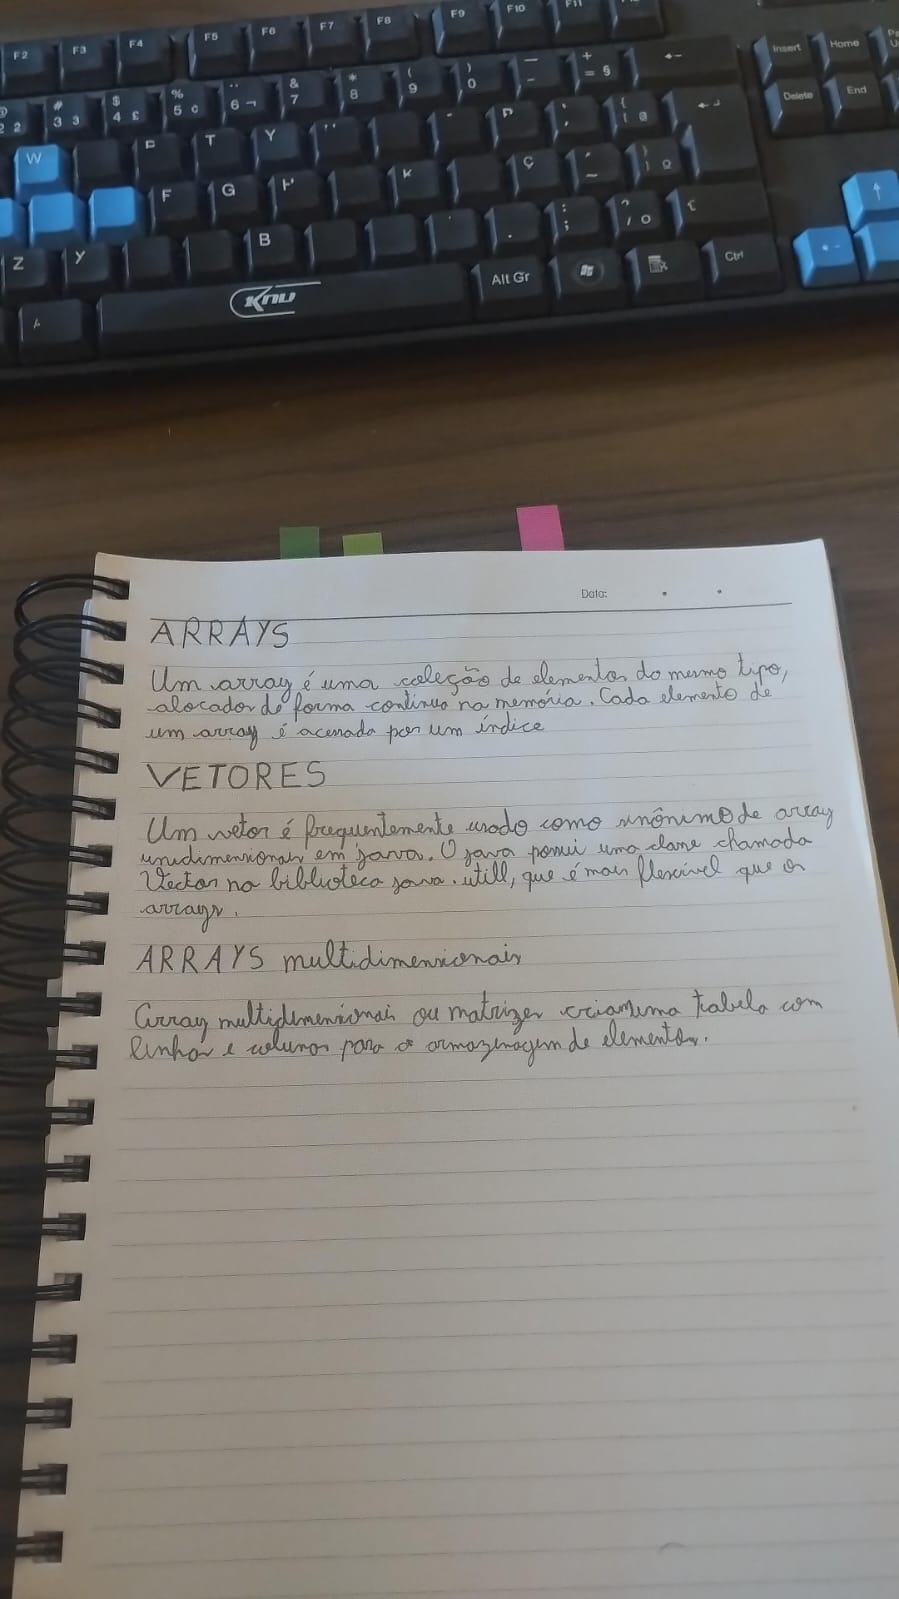 F2 F3 F4 F5 F6 F7 F8 F9 F10 F11
Insert Home
Delete End
# 3 3 $ 4 £ % 5 ¢ 6 ¬ & 7 * 8 ( 9 ) 0 — - + = §
W T Y P
F G H K Ç
Z B
Alt Gr Ctrl
KNU
Data:
ARRAYS
Um array é uma coleção de elementos do mesmo tipo,
alocados de forma continua na memória. Cada elemento de
um array é acessado por um índice
VETORES
Um vetor é frequentemente usado como sinônimo de array
unidimensionais em java. O java possui uma classe chamada
Vector na biblioteca java.utill, que é mais flexível que os
arrays.
ARRAYS multidimensionais
Array multidimensionais ou matrizes criam uma tabela com
linhas e colunas para a armazenagem de elementos.